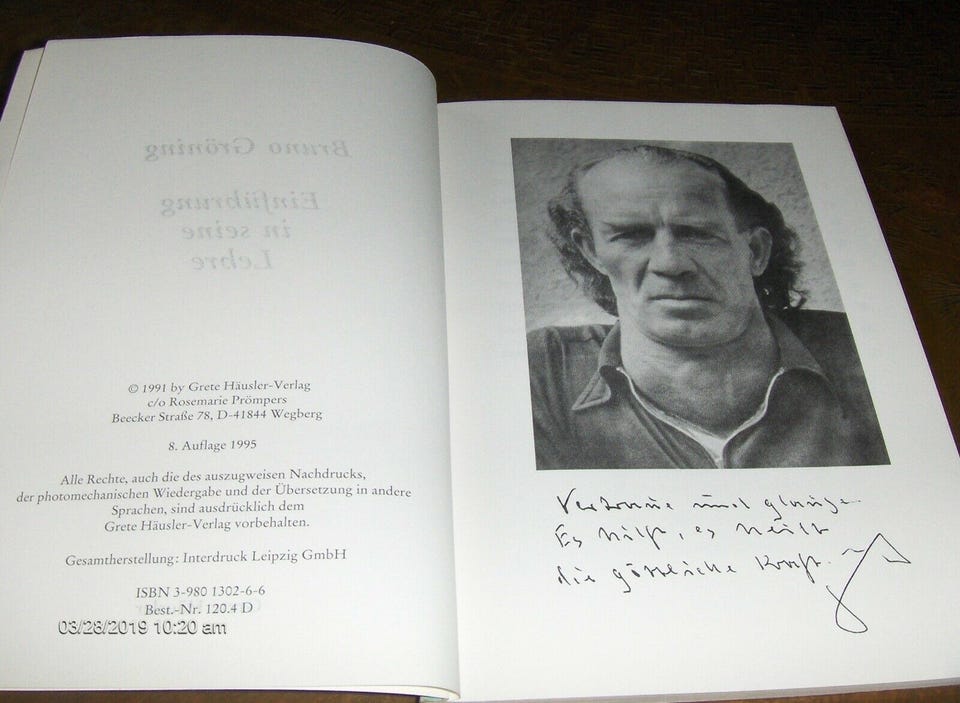 Bruno Gröning
Einführung
in seine
Lehre
© 1991 by Grete Häusler-Verlag
c/o Rosemarie Prömpers
Beecker Straße 78, D-41844 Wegberg
8. Auflage 1995
Alle Rechte, auch die des auszugweisen Nachdrucks,
der photomechanischen Wiedergabe und der Übersetzung in andere
Sprachen, sind ausdrücklich dem
Grete Häusler-Verlag vorbehalten.
Gesamtherstellung: Interdruck Leipzig GmbH
ISBN 3-980 1302-6-6
Best.-Nr. 120.4 D
03/28/2019 10:20 am
Vertraue und glaube.
Es hilft, es heilt
die göttliche Kraft.